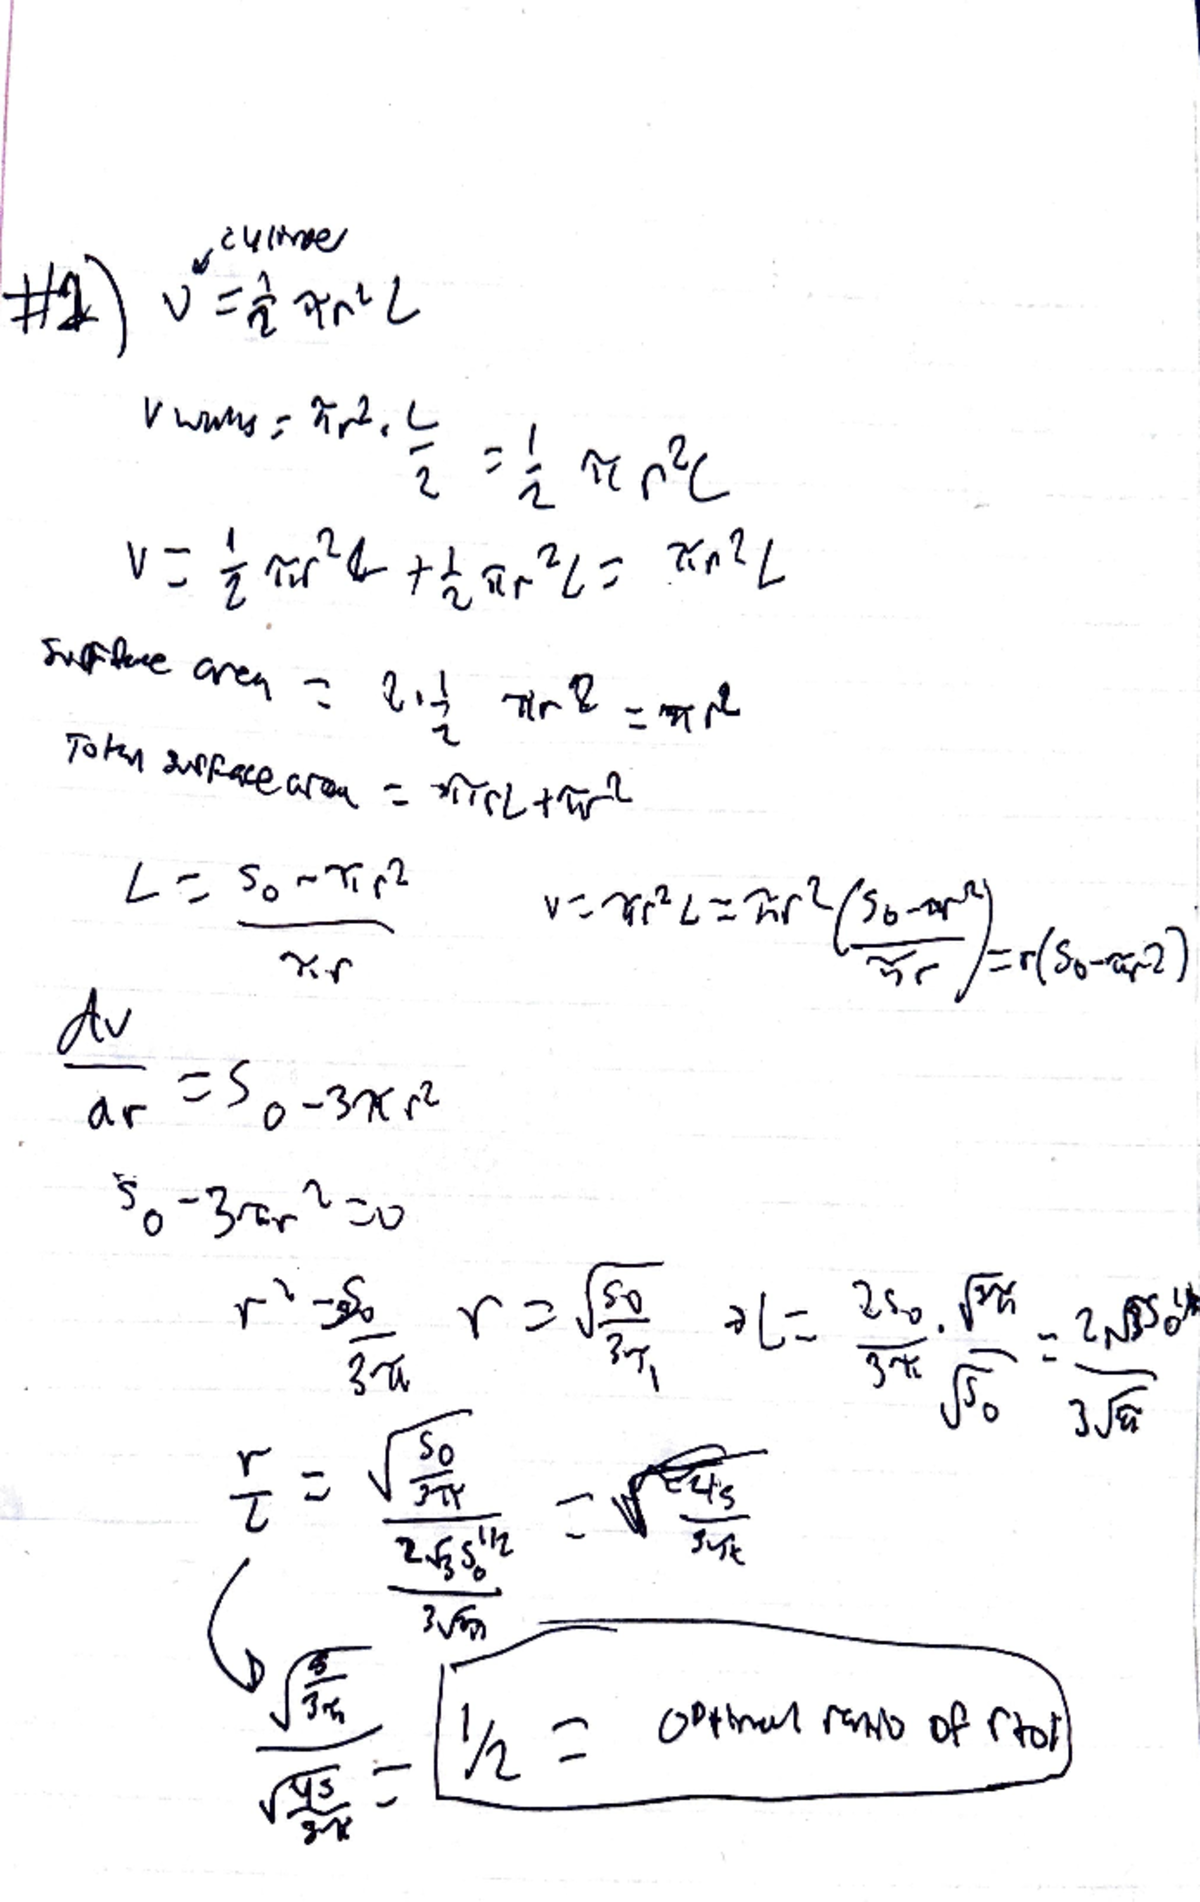 #1) V = 1/2 πr² L
V walls = πr² · L/2 = 1/2 π r² L
V = 1/2 πr² L + 1/2 πr² L = πr² L
Surface area = 2 · 1/2 πr² = πr²
Total surface area = πrL + πr²
L = (S₀ - πr²)/(πr)   V = πr² L = πr² ((S₀ - πr²)/(πr)) = r(S₀ - πr²)
dv/dr = S₀ - 3πr²
S₀ - 3πr² = 0
r² = S₀/(3π)   r = √(S₀/(3π))   L = 2S₀/(3π) · √(3π)/√S₀ = 2√3 S₀^(1/2)/(3√π)
r/L = √(S₀/(3π)) / (2√3 S₀^(1/2)/(3√π)) = √(4s/(3π))
√(s/(3π)) / √(4s/(3π)) = 1/2 = optimal ratio of r to l